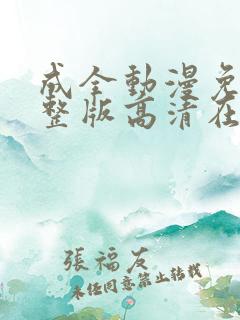 成全動漫免
整版高清在
張福友
未经同意禁止转载